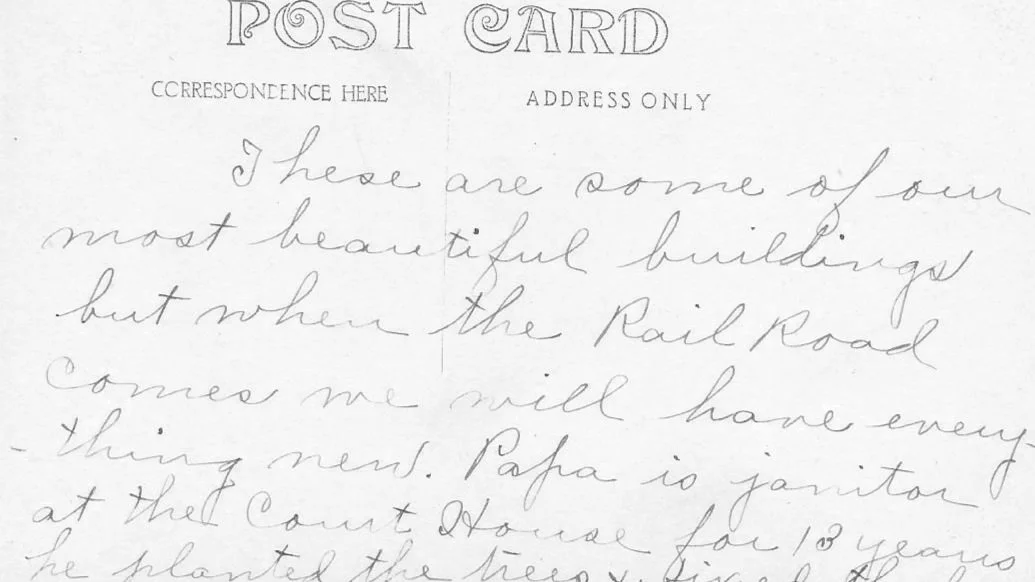 POST CARD
CORRESPONDENCE HERE
ADDRESS ONLY
These are some of our
most beautiful buildings
but when the Rail Road
comes we will have every-
-thing new. Papa is janitor
at the Court House for 13 years
he planted the trees &